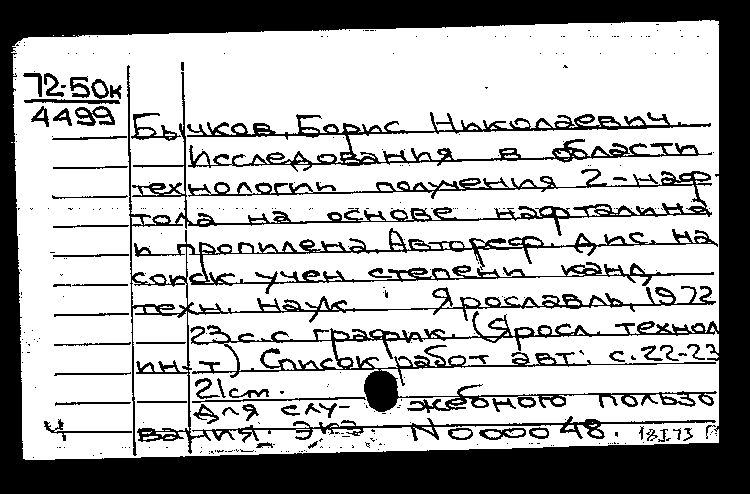 72-50к
4499
Бычков, Борис Николаевич.
Исследования в области
технологии получения 2-наф-
тола на основе нафталина
и пропилена. Автореф. дис. на
соиск. учен степени канд.
техн. наук. Ярославль, 1972
23 с. с график. (Яросл. технол
ин-т). Список работ авт: с. 22-23
21 см.
Для слу- жебного пользо
вания. экз. N 000048. 18 I 73
Ч